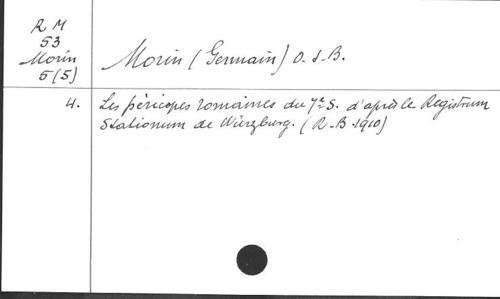 R M
53
Morin
5(5)
Morin (Germain) O.S.B.
4.
Les péricopes romaines du 7e S. d'après le Registrum
Stationum de Würzburg. (R-B-1910)